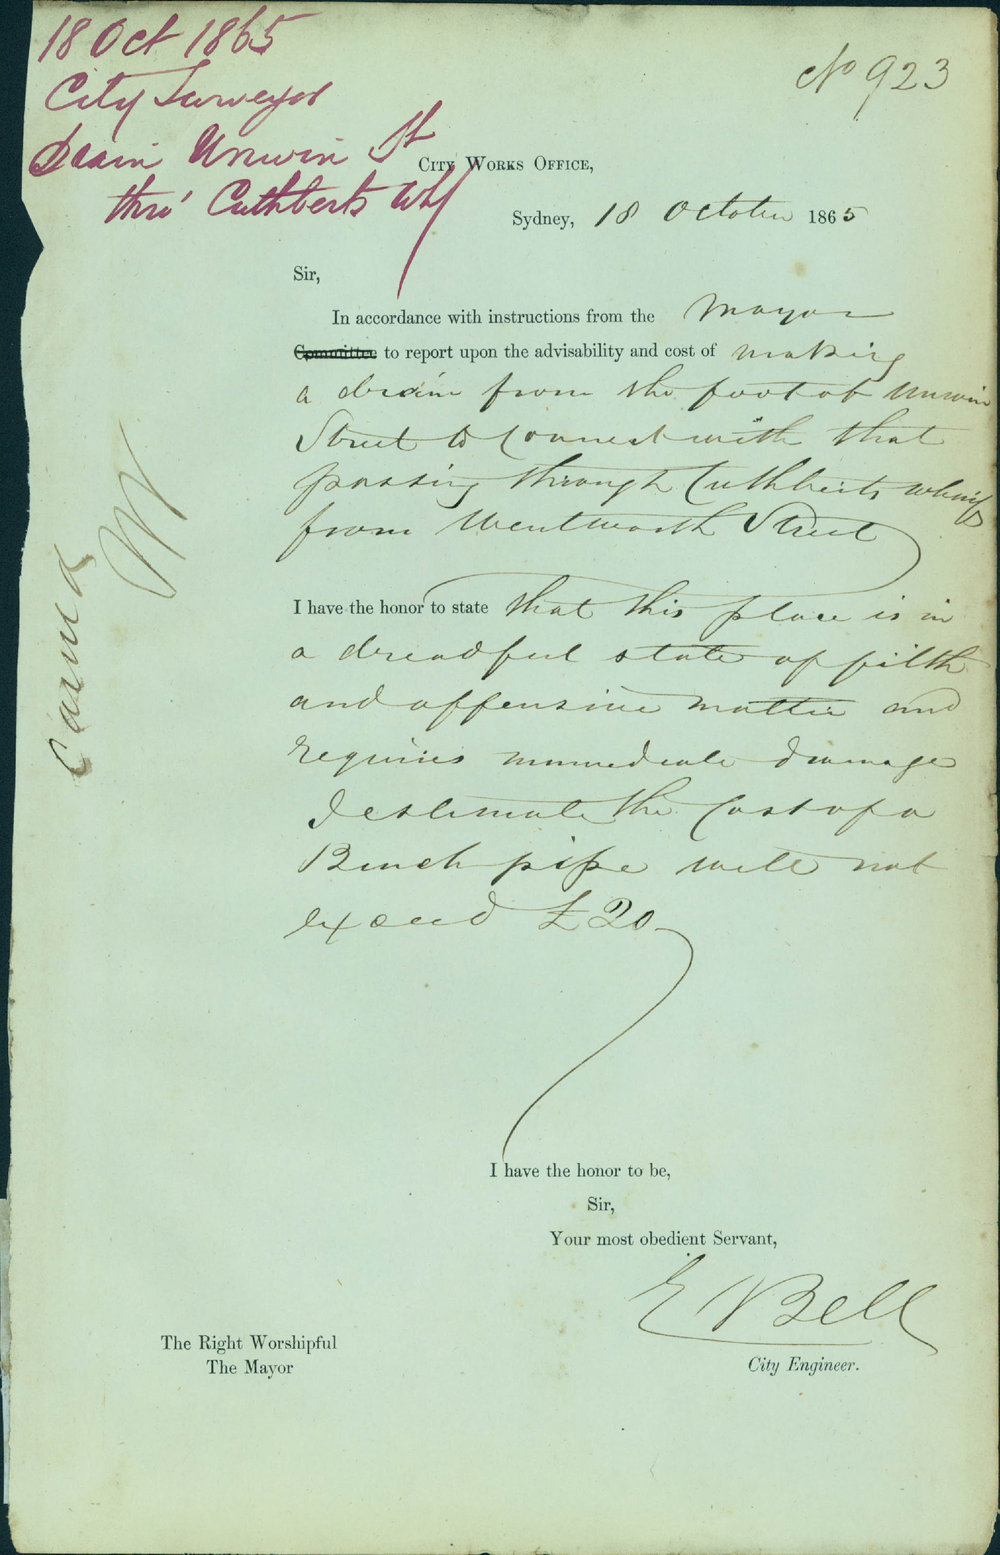 18 Oct 1865
City Surveyor
Drain Unwin St
thro' Cuthberts Whf
No 923
City Works Office,
Sydney, 18 October 1865
Sir,
In accordance with instructions from the Mayor
Committee to report upon the advisability and cost of making
a drain from the foot of Unwin
Street to Connect with that
passing through Cuthberts wharf
from Wentworth Street
I have the honor to state that this place is in
a dreadful state of filth
and offensive matter and
requires immediate drainage
I estimate the Cost of a
12 inch pipe will not
exceed £20
I have the honor to be,
Sir,
Your most obedient Servant,
E Bell
City Engineer.
The Right Worshipful
The Mayor